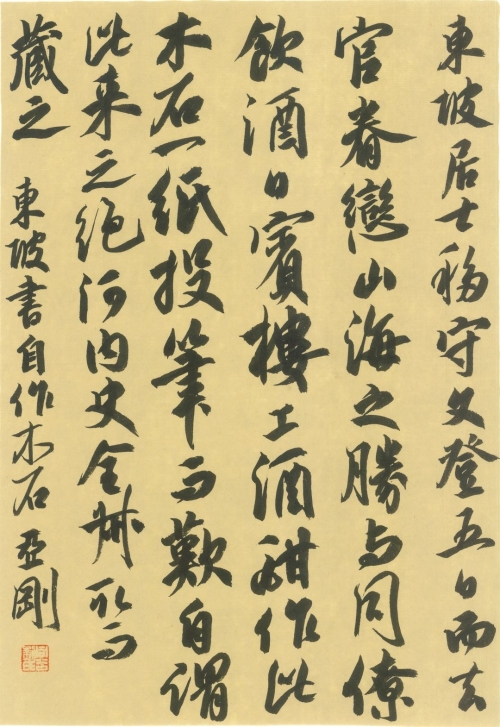 東坡居士移守文登五日而去
官眷戀山海之勝与同僚
飲酒日賓樓上酒酣作此
木石一紙投筆而歎自謂
此来之絶河内史全叔取而
藏之 東坡書自作木石 亞剛